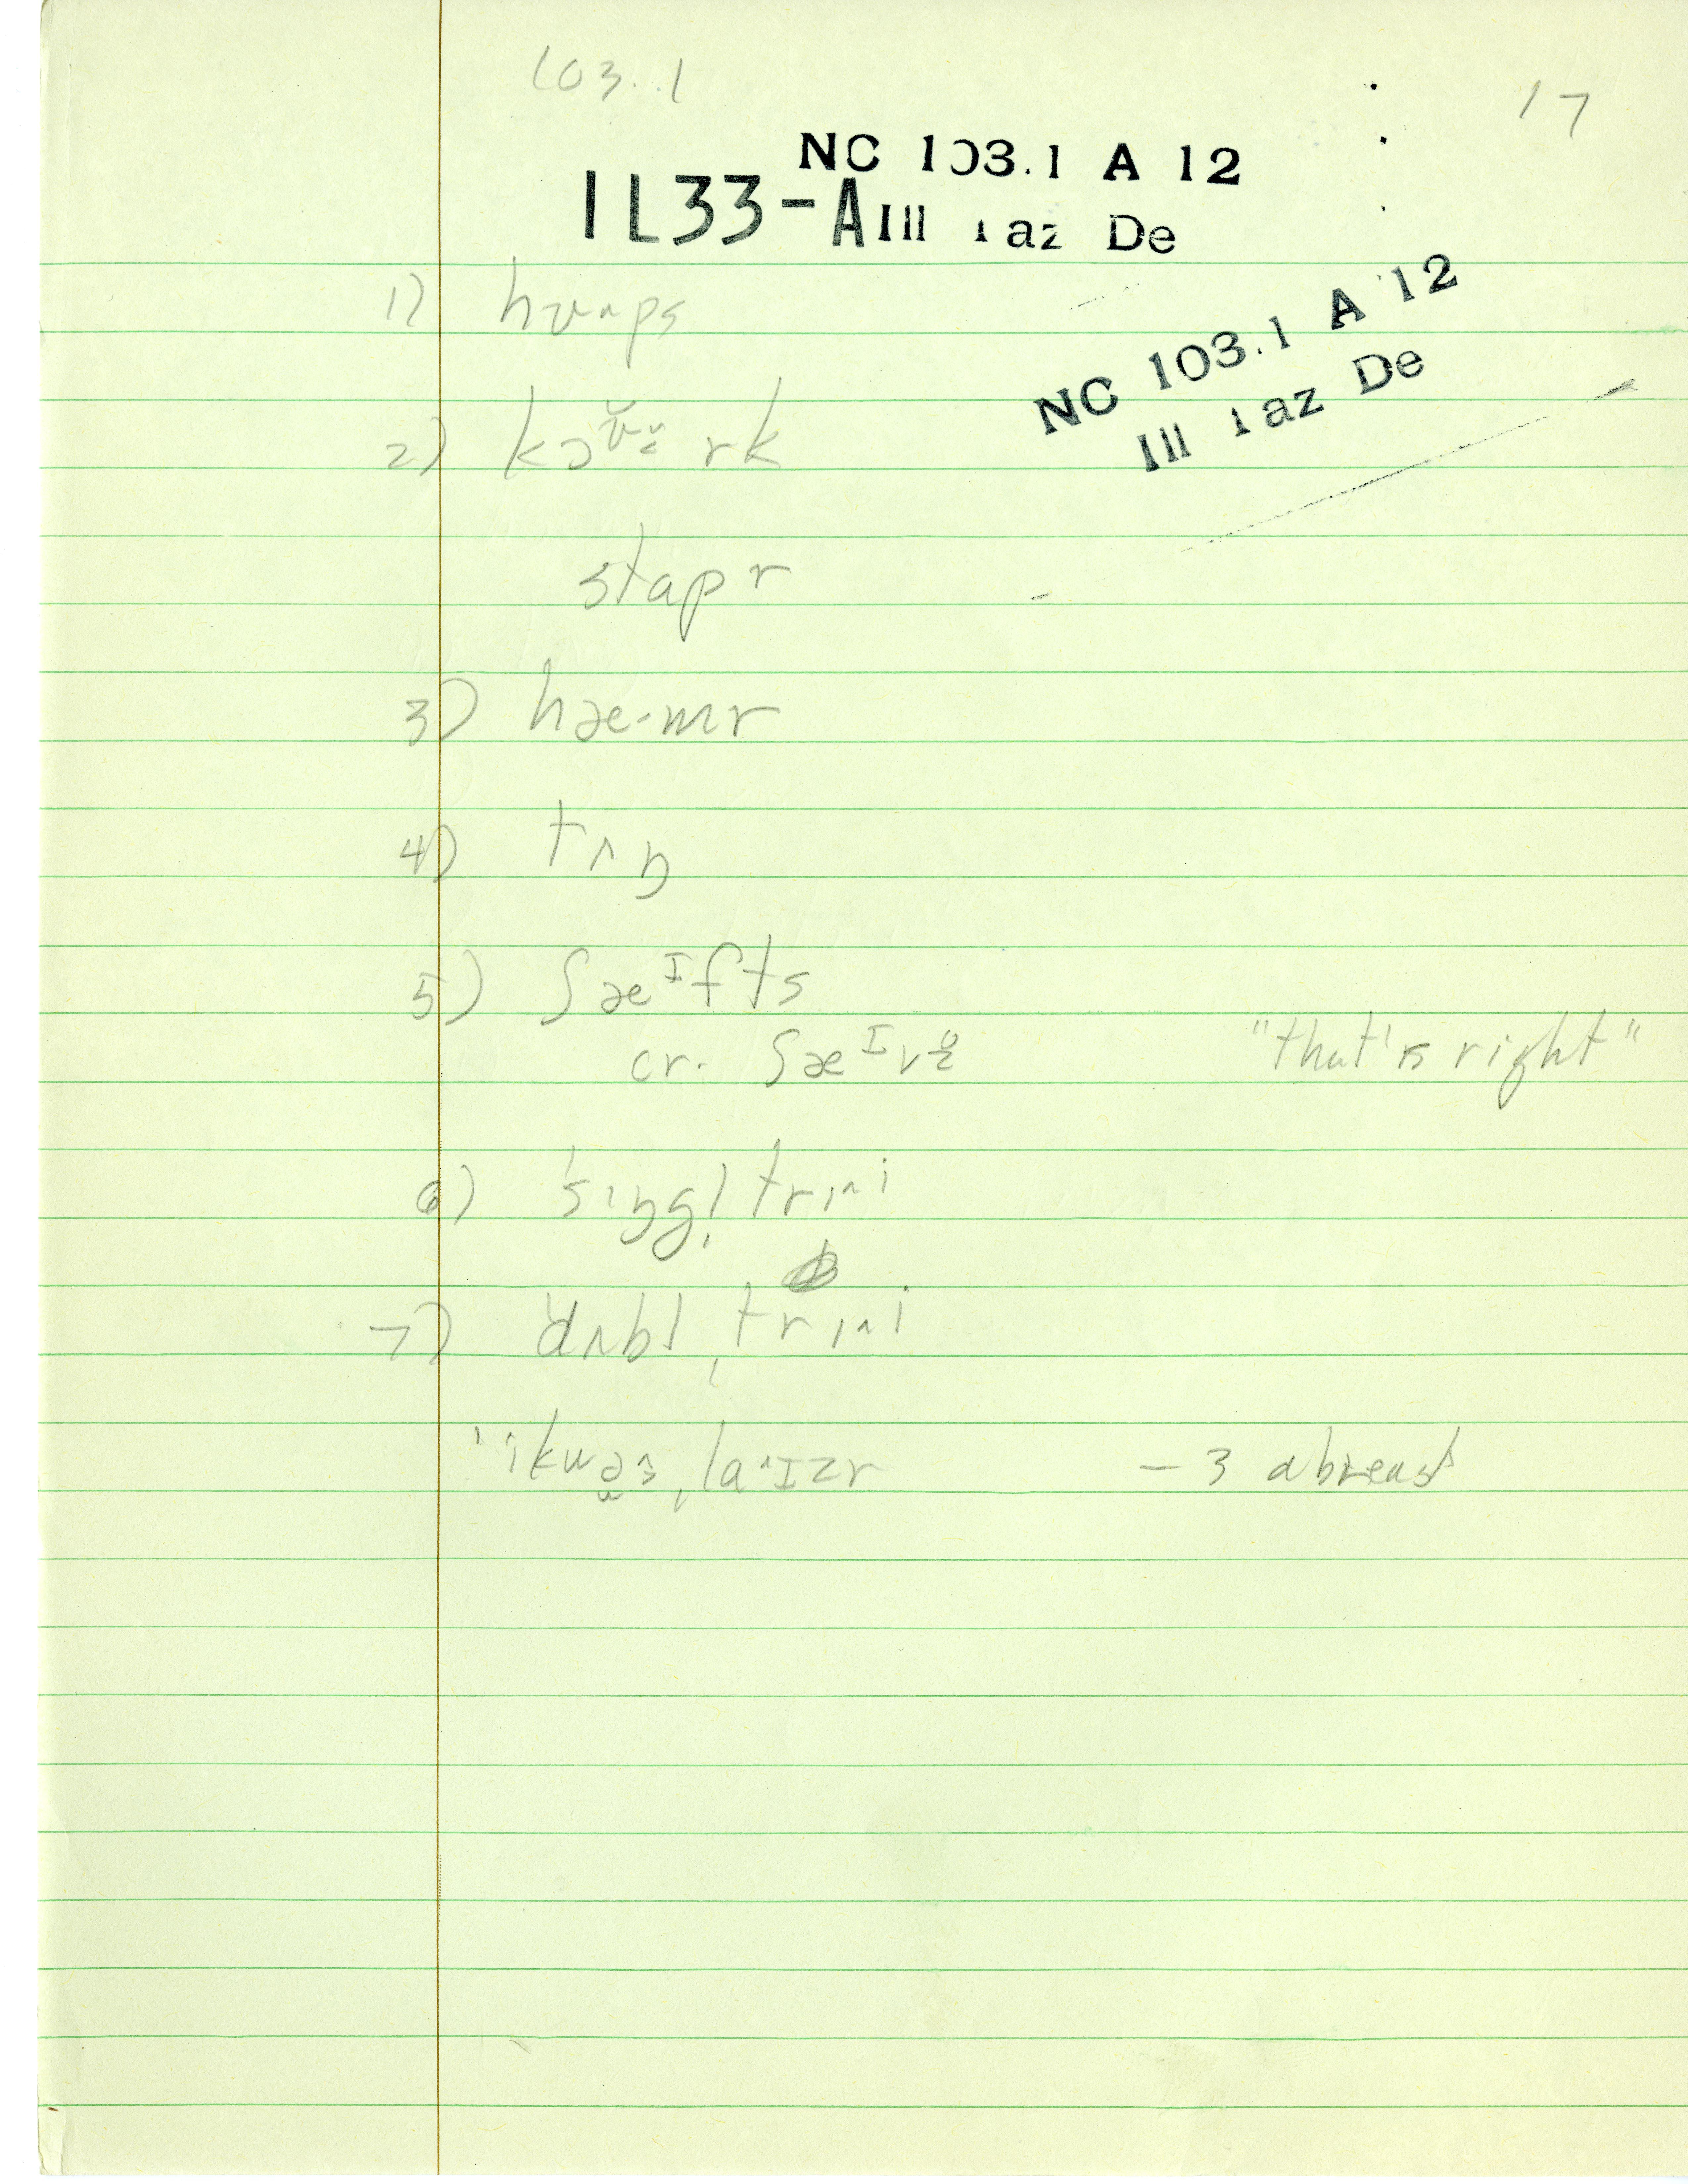 103.1
17
NC 103.1 A 12
IL33-A Ill 1 az De
NC 103.1 A 12
Ill 1 az De
1) hʊʌps
2) rk
stapr
3) hæ·mr
4) tʌŋ
5) ʃæᴵfts
cr. ʃæᴵvz̥ "that's right"
6) ˈsɪŋgl̩ trɪ^i
7) ˈdʌbl ˌtrɪ^i
ˌla^ɪzr – 3 abreast